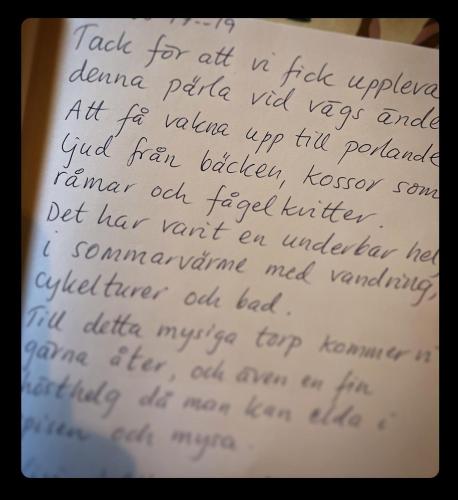 17--19
Tack för att vi fick uppleva
denna pärla vid vägs ände
Att få vakna upp till porlande
ljud från bäcken, kossor som
råmar och fågelkvitter.
Det har varit en underbar hel
i sommarvärme med vandring,
cykelturer och bad.
Till detta mysiga torp kommer vi
gärna åter, och även en fin
hösthelg då man kan elda i
spisen och mysa.